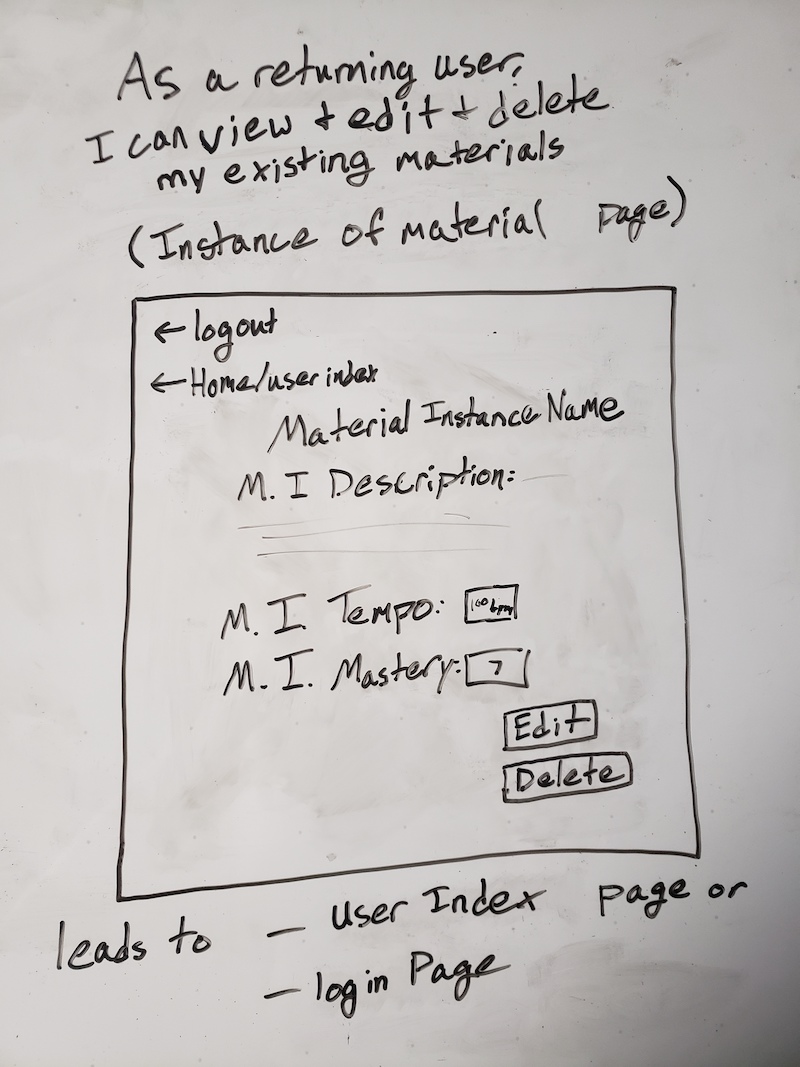 As a returning user,
I can view + edit + delete
my existing materials
(Instance of material page)
← logout
← Home/user index
Material Instance Name
M. I Description:
M. I. Tempo: 100 bpm
M. I. Mastery: 7
Edit
Delete
leads to – user Index page or
– login Page